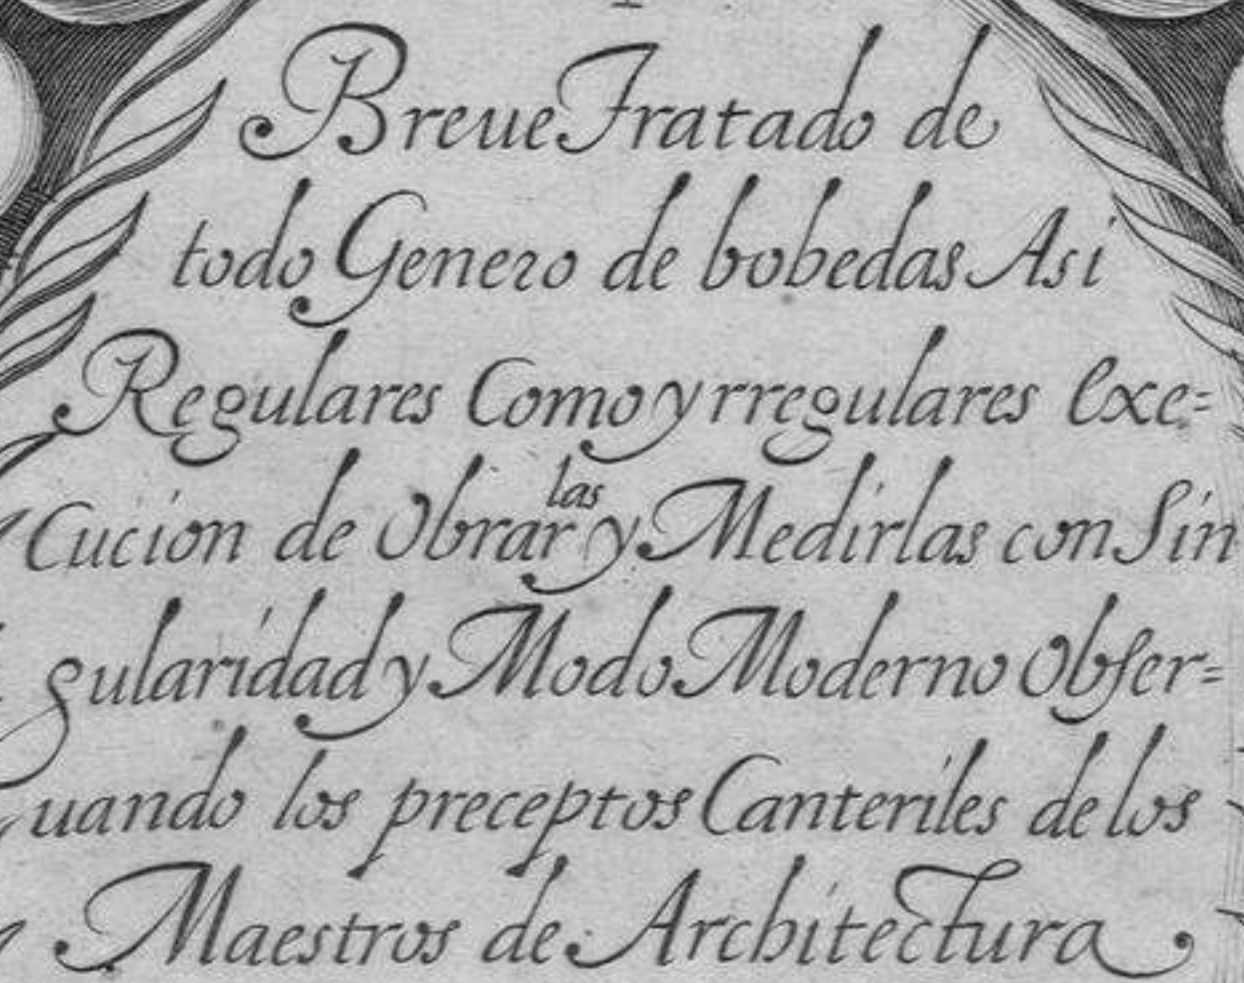 Breue Tratado de
todo Genero de bobedas Asi
Regulares Como yrregulares exe=
Cucion de Obrarlas y Medirlas con Sin
gularidad y Modo Moderno Obser=
uando los preceptos Canteriles de los
Maestros de Architectura